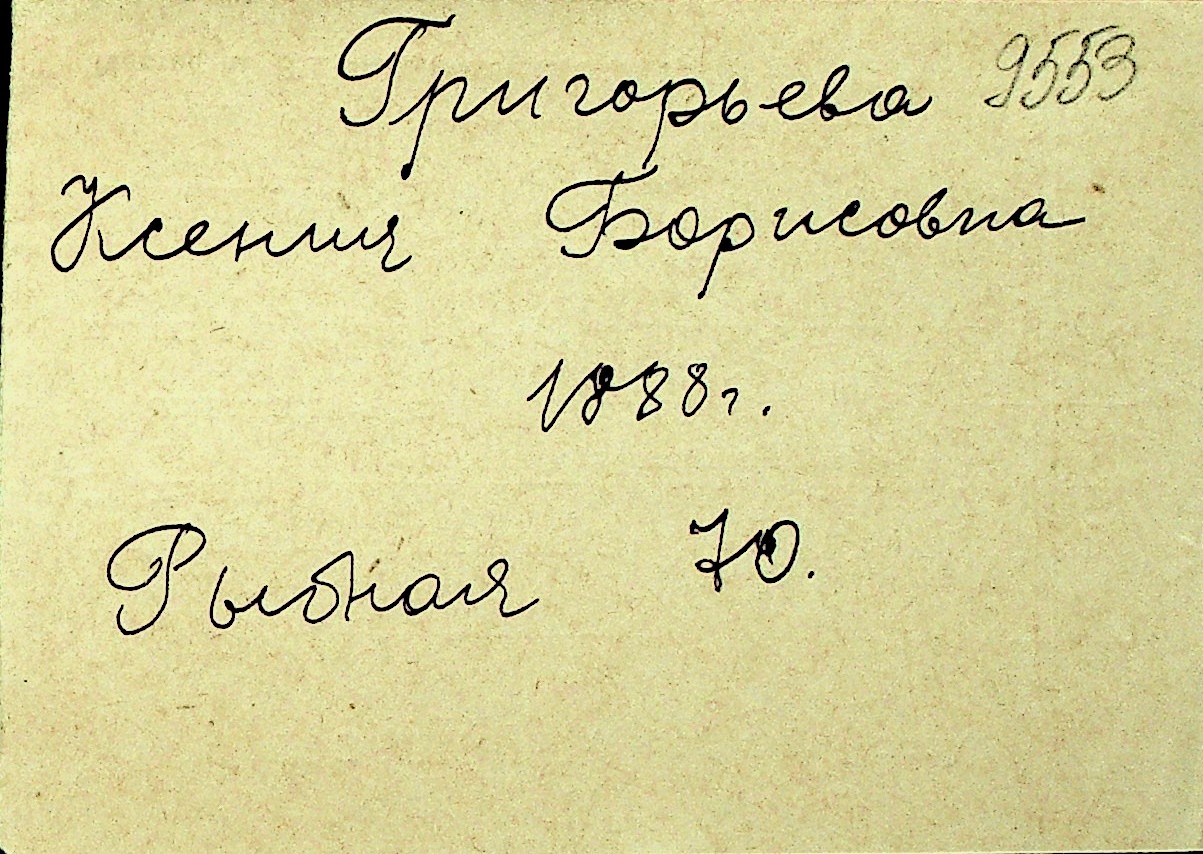 Григорьева 9553
Ксения Борисовна
1888г.
Рыбная 70.